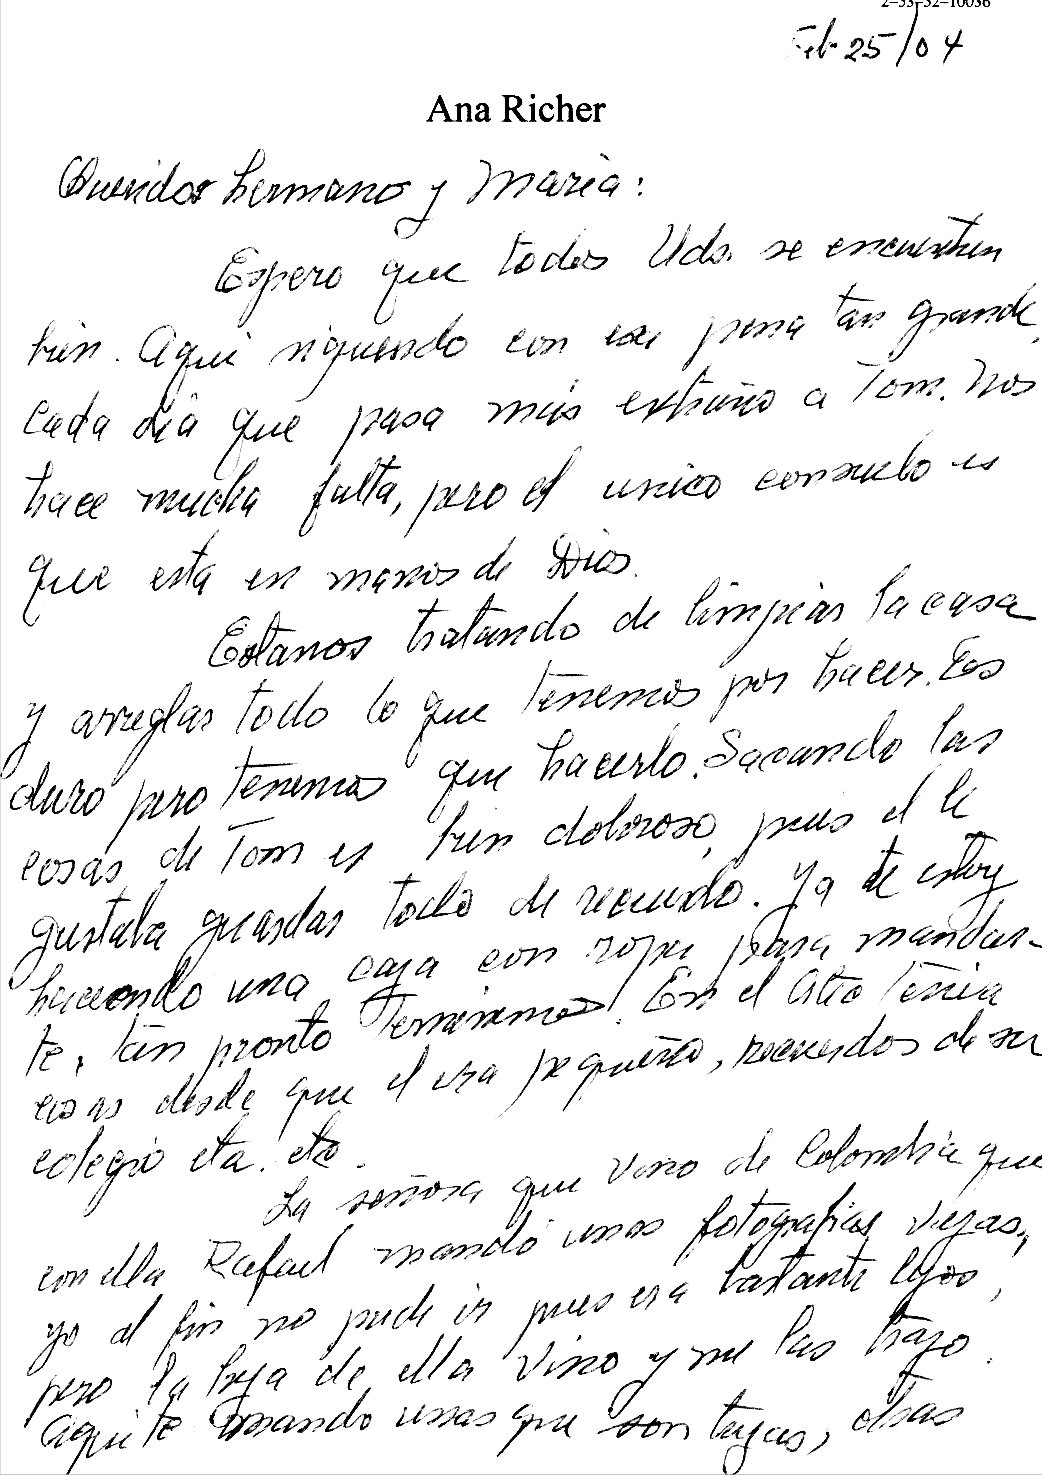 2-53-52-10036
Feb 25/04
Ana Richer
Queridos hermano y Maria:
Espero que todos Uds. se encuentren
bien. Aqui siguendo con esa pena tan grande,
cada dia que pasa más extraño a Tom. Nos
hace mucha falta, pero el unico consuelo es
que esta en manos de Dios.
Estamos tratando de limpiar la casa
y arreglar todo lo que tenemos por hacer. Es
duro pero tenemos que hacerlo. Sacando las
cosas de Tom es bien doloroso, pues el le
gustaba guardar todo de recuerdo. Ya te estoy
haciendo una caja con ropa para mandar-
te, tan pronto terminemos. En el atico tenia
cosas desde que el era pequeño, recuerdos de su
colegio etc. etc.
La señora que vino de Colombia que
con ella Rafael mandó unas fotografias viejas,
yo al fin no pude ir pues era bastante lejos,
pero la hija de ella vino y me las trajo.
Aqui te mando unas que son tuyas, otras